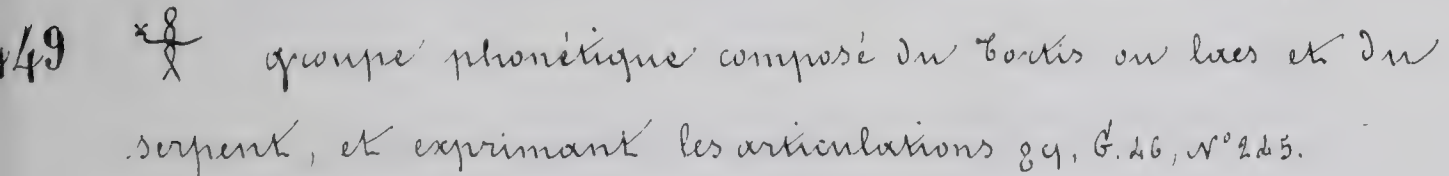 449 groupe phonétique composé du tortis ou lacs et du
serpent, et exprimant les articulations ϩϥ, G. 46, N° 245.